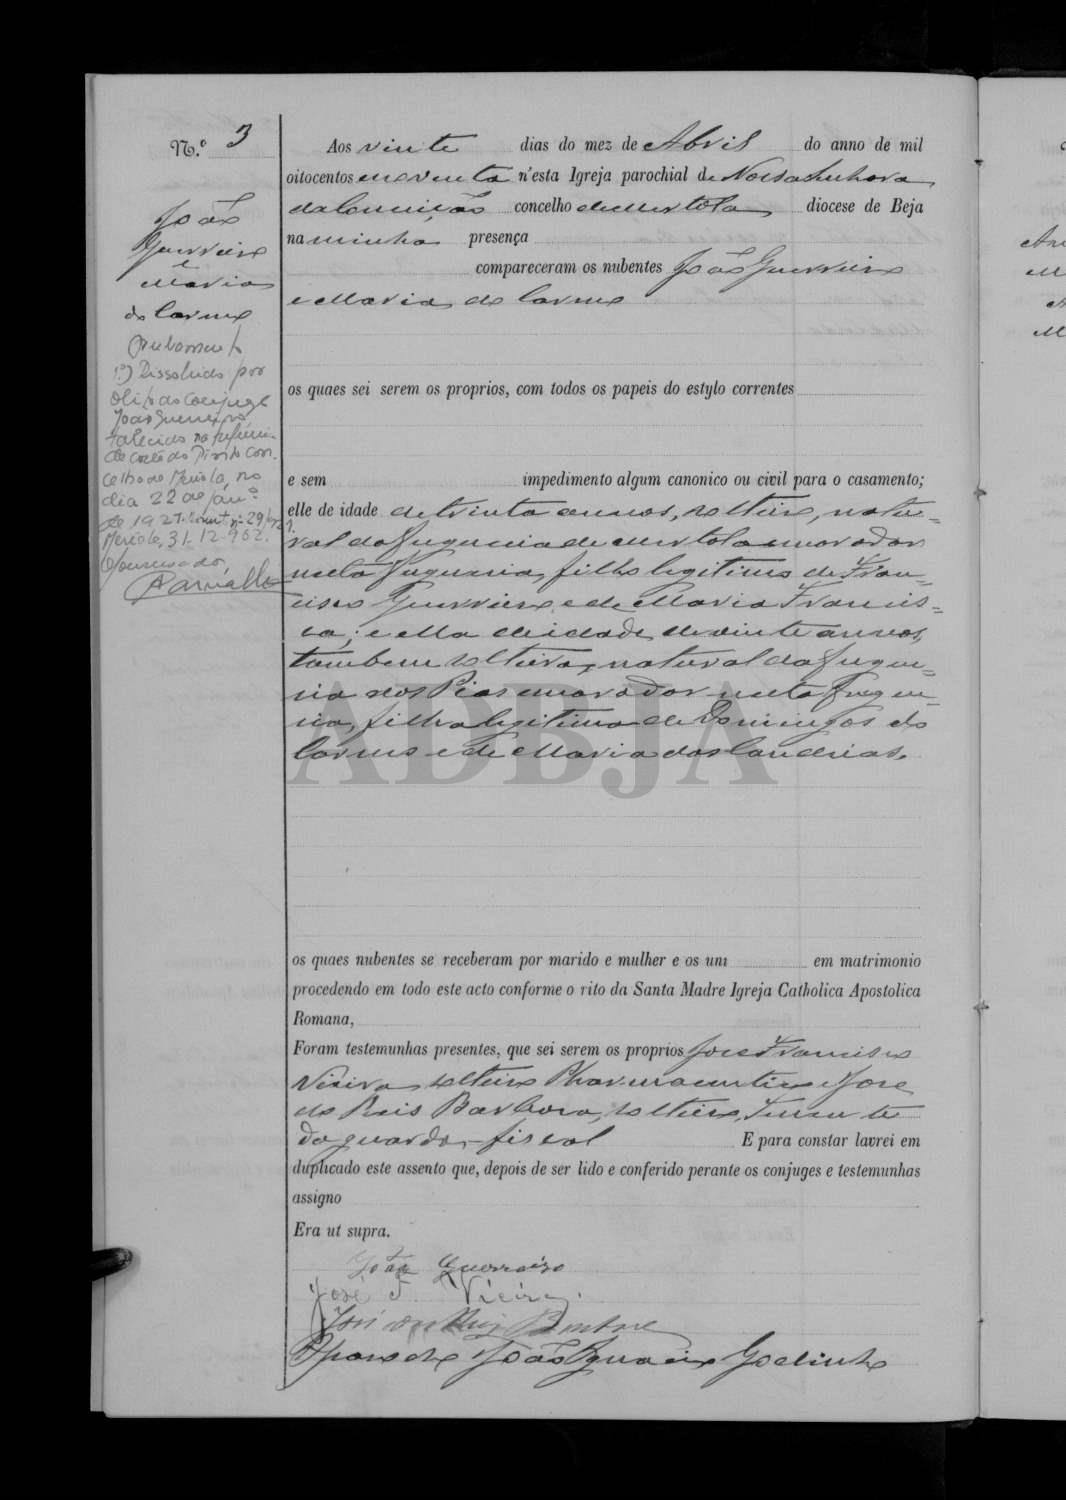 N.º 3
João
Guerreiro
e
Maria
do Carmo
Averbamento
1º) Dissolvido por
obito do conjuge
João Guerreiro
falecido na freguesia
de Corte do Pinto con-
celho de Mertola, no
dia 22 de jan.º
de 1927. Assento nº 29
Mertola, 31-12-962.
O Conservador,
Carvalho
Aos vinte dias do mez de Abril do anno de mil
oitocentos e noventa n'esta Igreja parochial de Nossa Senhora
da Conceição concelho de Mertola diocese de Beja
na minha presença
compareceram os nubentes João Guerreiro
e Maria do Carmo
os quaes sei serem os proprios, com todos os papeis do estylo correntes
e sem impedimento algum canonico ou civil para o casamento;
elle de idade de trinta annos, solteiro, natu-
ral da freguesia de Mertola e morador
nesta freguesia, filho legitimo de Fran-
cisco Guerreiro, e de Maria Francis-
ca; e ella de idade de vinte annos,
tambem solteira, natural da fregue-
sia dos Pias morador nesta fregue-
sia, filha legitima de Domingos do
Carmo e de Maria das Candeias.
ADBJA
os quaes nubentes se receberam por marido e mulher e os uni em matrimonio
procedendo em todo este acto conforme o rito da Santa Madre Igreja Catholica Apostolica
Romana,
Foram testemunhas presentes, que sei serem os proprios José Francisco
Vieira, solteiro Pharmaceutico e José
do Reis Barbosa, solteiro, Tenente
da guarda-fiscal E para constar lavrei em
duplicado este assento que, depois de ser lido e conferido perante os conjuges e testemunhas
assigno
Era ut supra.
João Guerreiro
José F. Vieira.
José dos Reis Barbosa
O Parocho João Ignacio Godinho